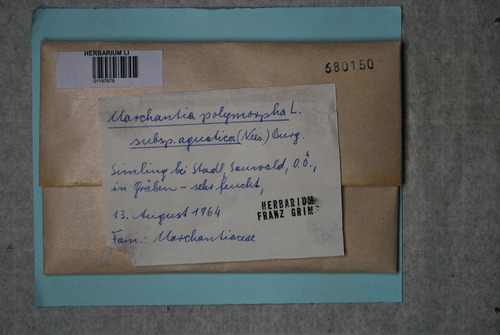 HERBARIUM LI
680150
Marchantia polymorpha L.
subsp. aquatica (Nees.) Burg.
Simling bei Stadl, Sauwald, O.Ö.,
in Gräben - sehr feucht,
13. August 1964
HERBARIUM
FRANZ GRIMS
Fam.: Marchantiaceae